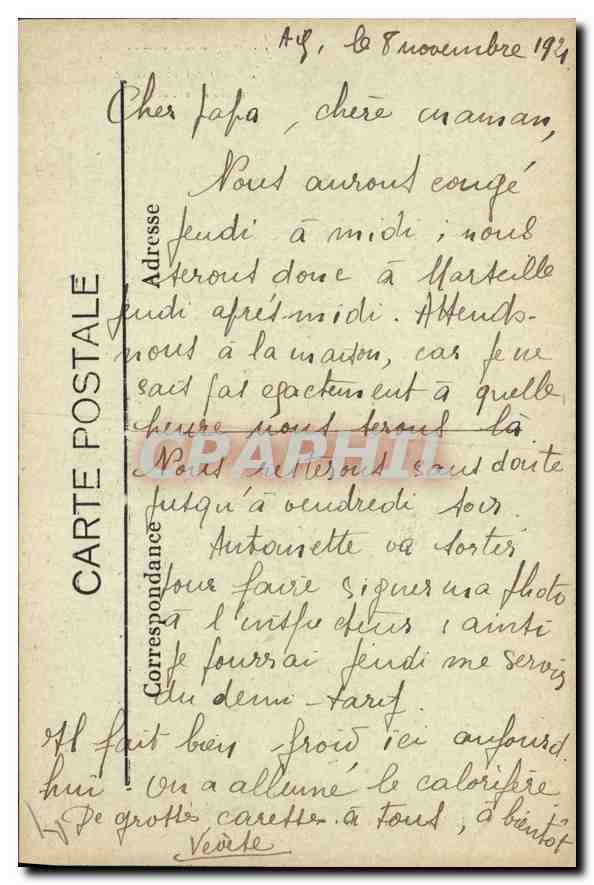 Aix, le 8 novembre 1921.
Cher papa, chère maman,
Nous aurons congé
jeudi à midi ; nous
serons donc à Marseille
jeudi après-midi. Attends-
nous à la maison, car je ne
sais pas exactement à quelle
heure nous serons là
Nous resterons sans doute
jusqu'à vendredi soir.
Antoinette va sortir
pour faire signer ma photo
à l'inspecteur ; ainsi
je pourrai jeudi me servir
du demi-tarif.
Il fait bien froid ici aujourd'
hui. On a allumé le calorifère.
De grosses caresses à tous, à bientôt
CARTE POSTALE
Correspondance
Adresse
CPAPHIL